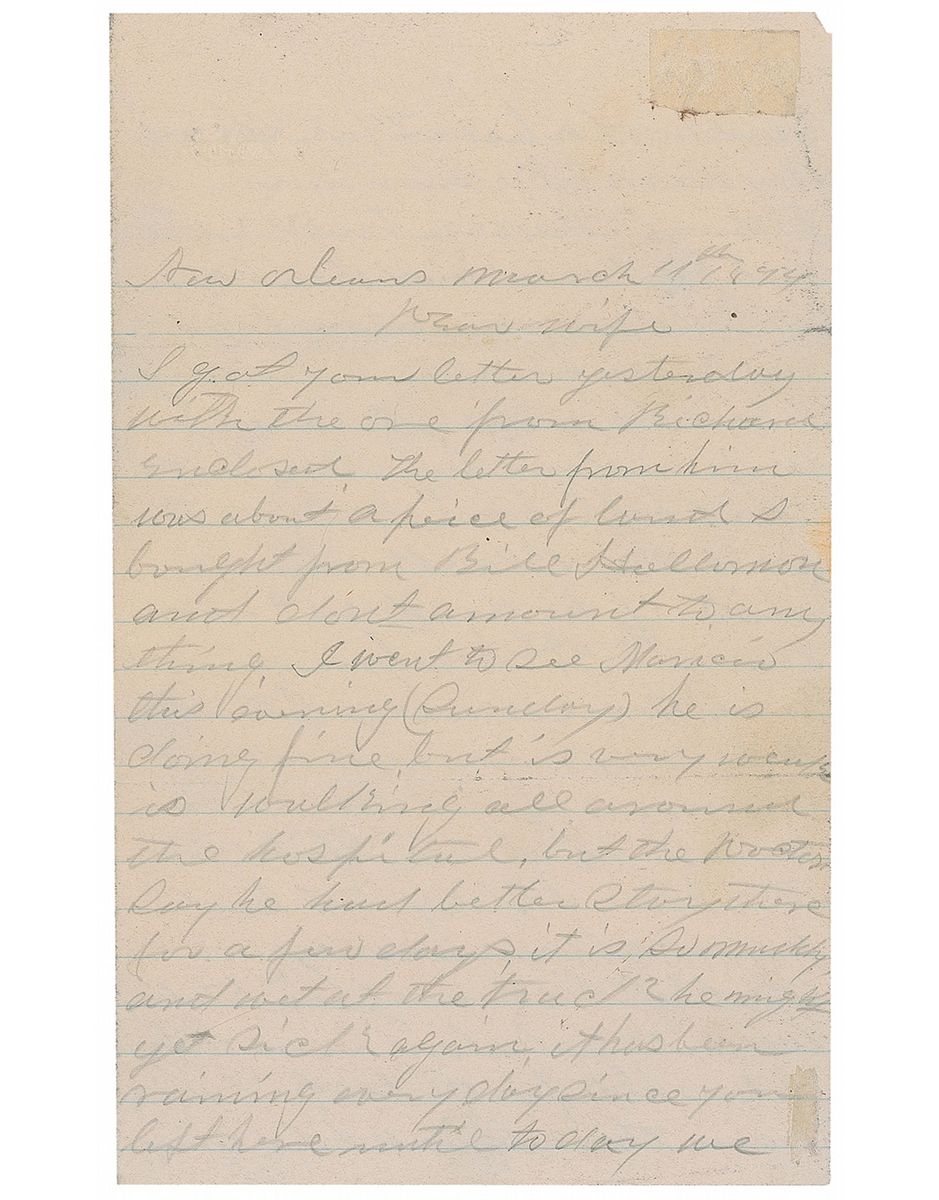 New Orleans March 11th 1894
Dear wife
I got your letter yesterday
with the one from Richard
enclosed. The letter from him
was about a peice of land I
bought from Bill Hallomon
and dont amount to any
thing. I went to see
this evening (Sunday) he is
doing fine, but is very weak
is walking all around
the hospital, but the Doctors
Say he had better Stay there
for a few days, it is, So muddy
and wet at the track he might
get Sick again, it has been
raining every day since you
left here until today we